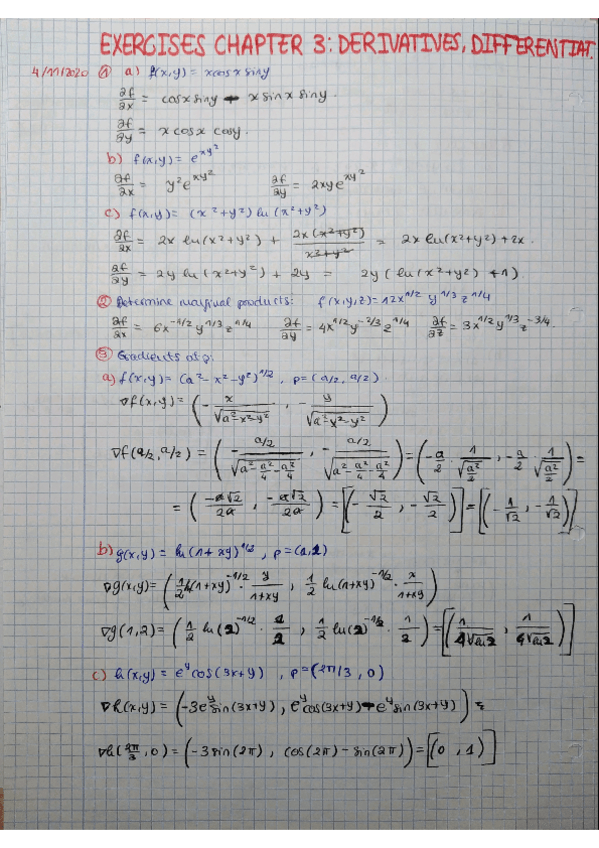 EXERCISES CHAPTER 3: DERIVATIVES, DIFFERENTIAT.
4/11/2020 ① a) f(x,y) = x cos x sin y
∂f/∂x = cos x sin y - x sin x sin y.
∂f/∂y = x cos x cos y.
b) f(x,y) = e^(xy²)
∂f/∂x = y² e^(xy²) ∂f/∂y = 2xy e^(xy²)
c) f(x,y) = (x²+y²) ln (x²+y²)
∂f/∂x = 2x ln(x²+y²) + 2x(x²+y²)/(x²+y²) = 2x ln(x²+y²) + 2x.
∂f/∂y = 2y ln(x²+y²) + 2y = 2y (ln(x²+y²) + 1)
② Determine marginal products: f(x,y,z) = 12x^(1/2) y^(1/3) z^(1/4)
∂f/∂x = 6x^(-1/2) y^(1/3) z^(1/4) ∂f/∂y = 4x^(1/2) y^(-2/3) z^(1/4) ∂f/∂z = 3x^(1/2) y^(1/3) z^(-3/4).
③ Gradients at p:
a) f(x,y) = (a² - x² - y²)^(1/2), p = (a/2, a/2)
∇f(x,y) = (- x/√(a²-x²-y²), - y/√(a²-x²-y²))
∇f(a/2, a/2) = (- (a/2)/√(a² - a²/4 - a²/4), - (a/2)/√(a² - a²/4 - a²/4)) = (- a/2 · 1/√(a²/2), - a/2 · 1/√(a²/2)) =
= (-a√2/2a, -a√2/2a) = [(-√2/2, -√2/2)] = [(-1/√2, -1/√2)]
b) g(x,y) = ln(1+xy)^(1/2), p = (1,2)
∇g(x,y) = (1/2 ln(1+xy)^(-1/2) · y/(1+xy), 1/2 ln(1+xy)^(-1/2) · x/(1+xy))
c) h(x,y) = e^y cos(3x+y), p = (2π/3, 0)
∇h(x,y) = (-3e^y sin(3x+y), e^y cos(3x+y) - e^y sin(3x+y)) =
∇h(2π/3, 0) = (-3 sin(2π), cos(2π) - sin(2π)) = [(0, 1)]